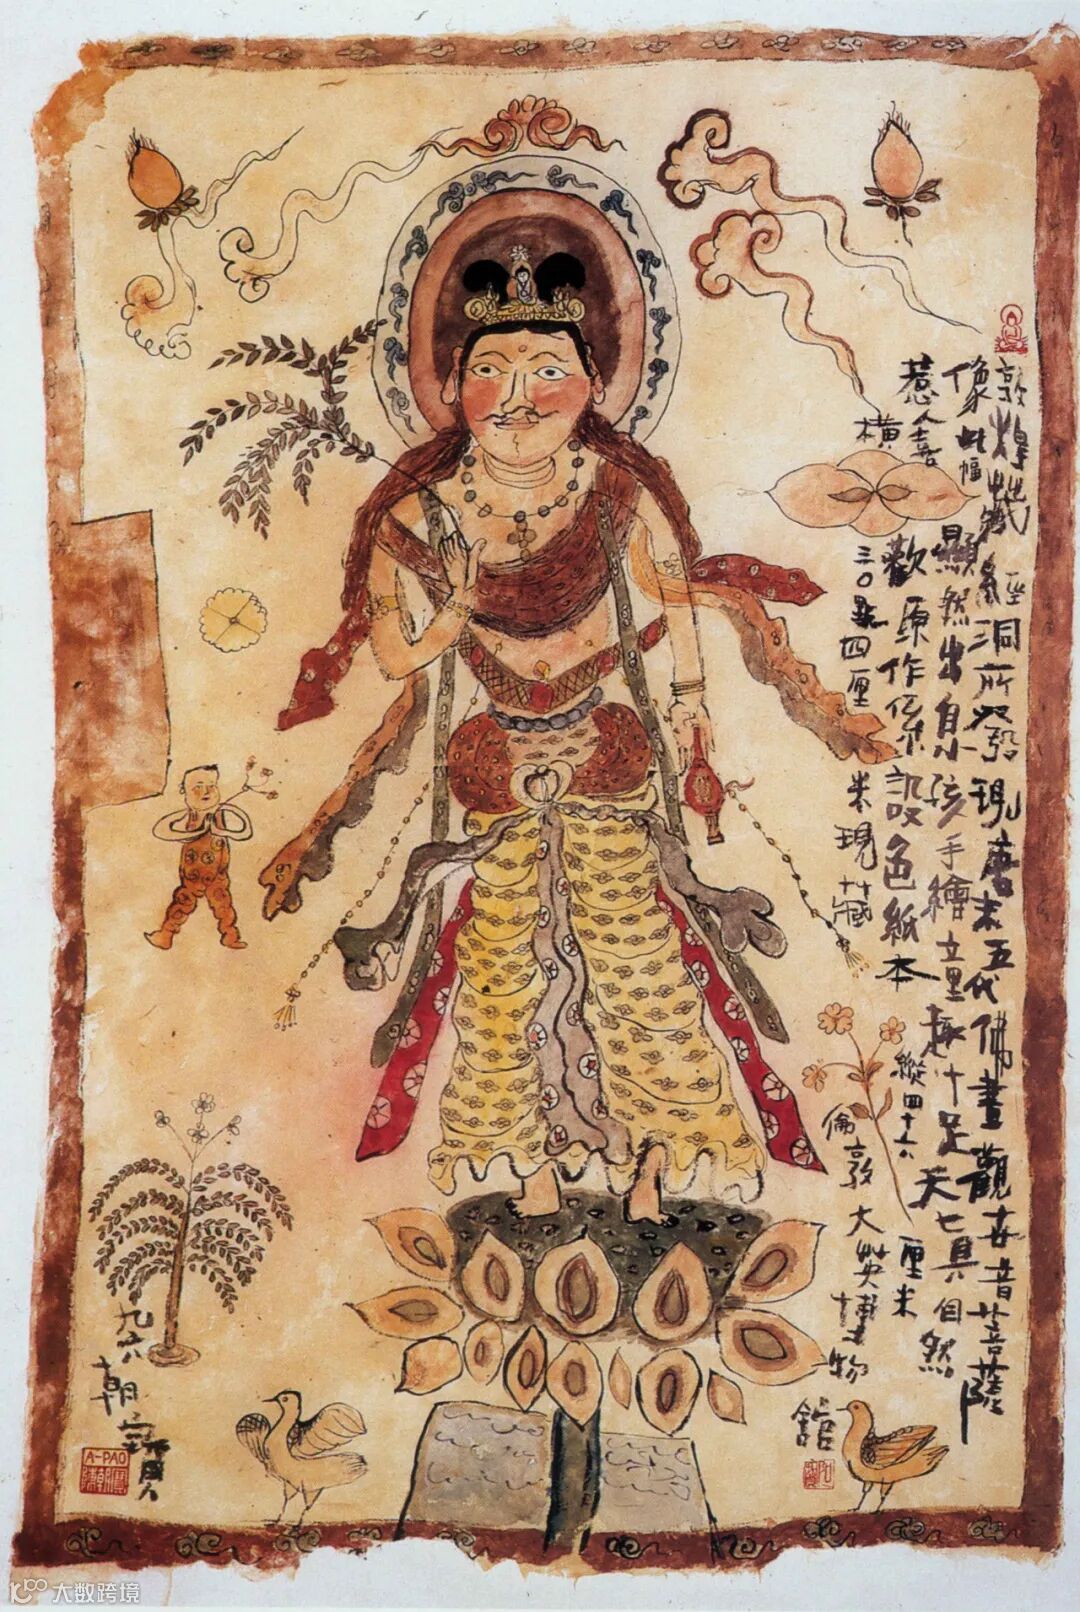 敦煌藏經洞所發現唐末五代佛畫觀世音菩薩
像此幅顯然出自小孩手繪立畫趣十足天七具自然
惹人喜歡原作係設色紙本縱四十六厘米
橫三〇點四厘米現藏倫敦大英博物館
九六朝寶
A-PAO
陳朝寶
大数跨境